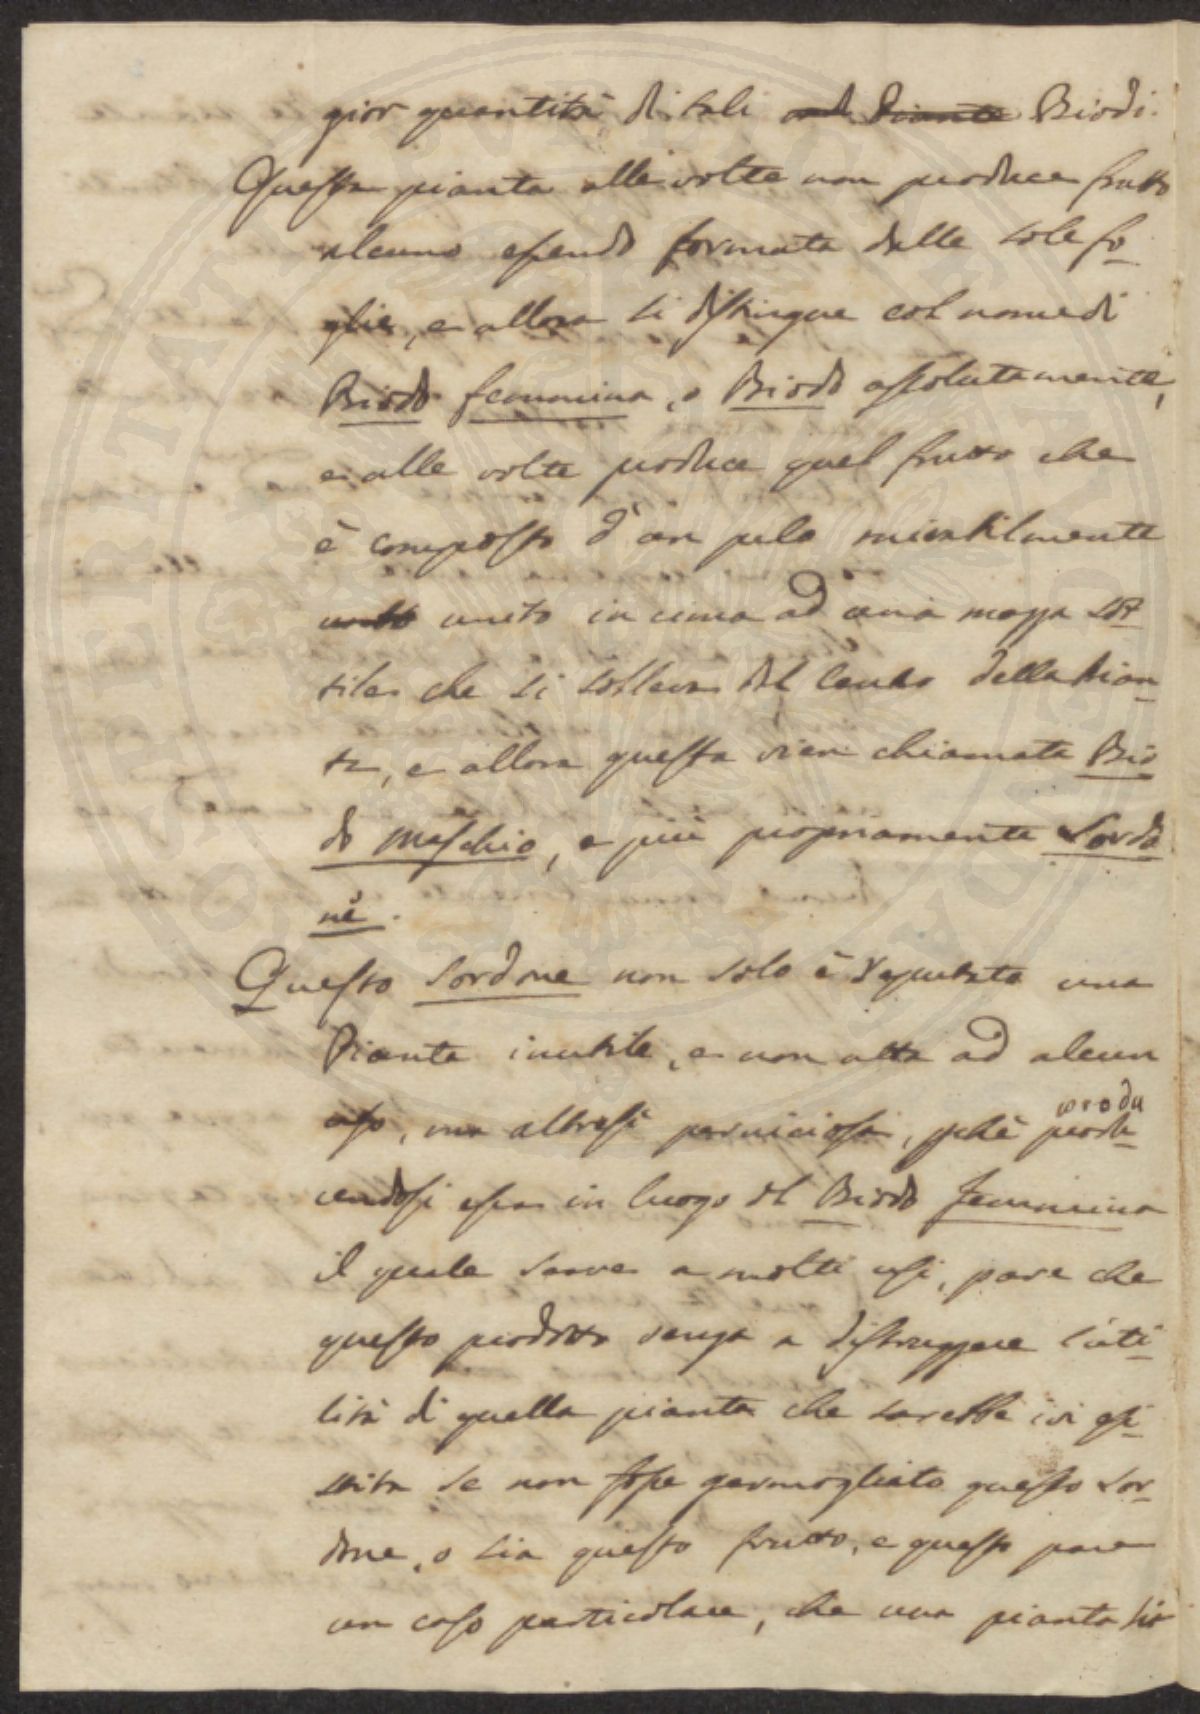 gior quantità di tali Biodi.
Questa pianta alle volte non produce frutto
alcuno essendo formata dalle sole fo-
glie, e allora si distingue col nome di
Biodo femmina, o Biodo assolutamente,
e alle volte produce quel frutto che
è composto d'un pelo mirabilmente
unito in cima ad una mazza sot-
tile che si solleva dal centro della Pian-
ta, e allora questa vien chiamata Bio
do Maschio, e più propriamente Sordo
ne.
Questo Sordone non solo è reputata una
Pianta inutile, e non atta ad alcun
uso, ma altresì perniciosa, pchè produ-
cendosi essa in luogo del Biodo femmina
il quale serve a molti usi, pare che
questo prodotto venga a distruggere l'uti-
lità di quella pianta che sarebbe ivi esi-
stita se non fosse germogliato questo Sor-
done, o sia questo frutto, e questo pare
un caso particolare, che una pianta sia
SOSPERITATI PUBLICAE AUGENDAE